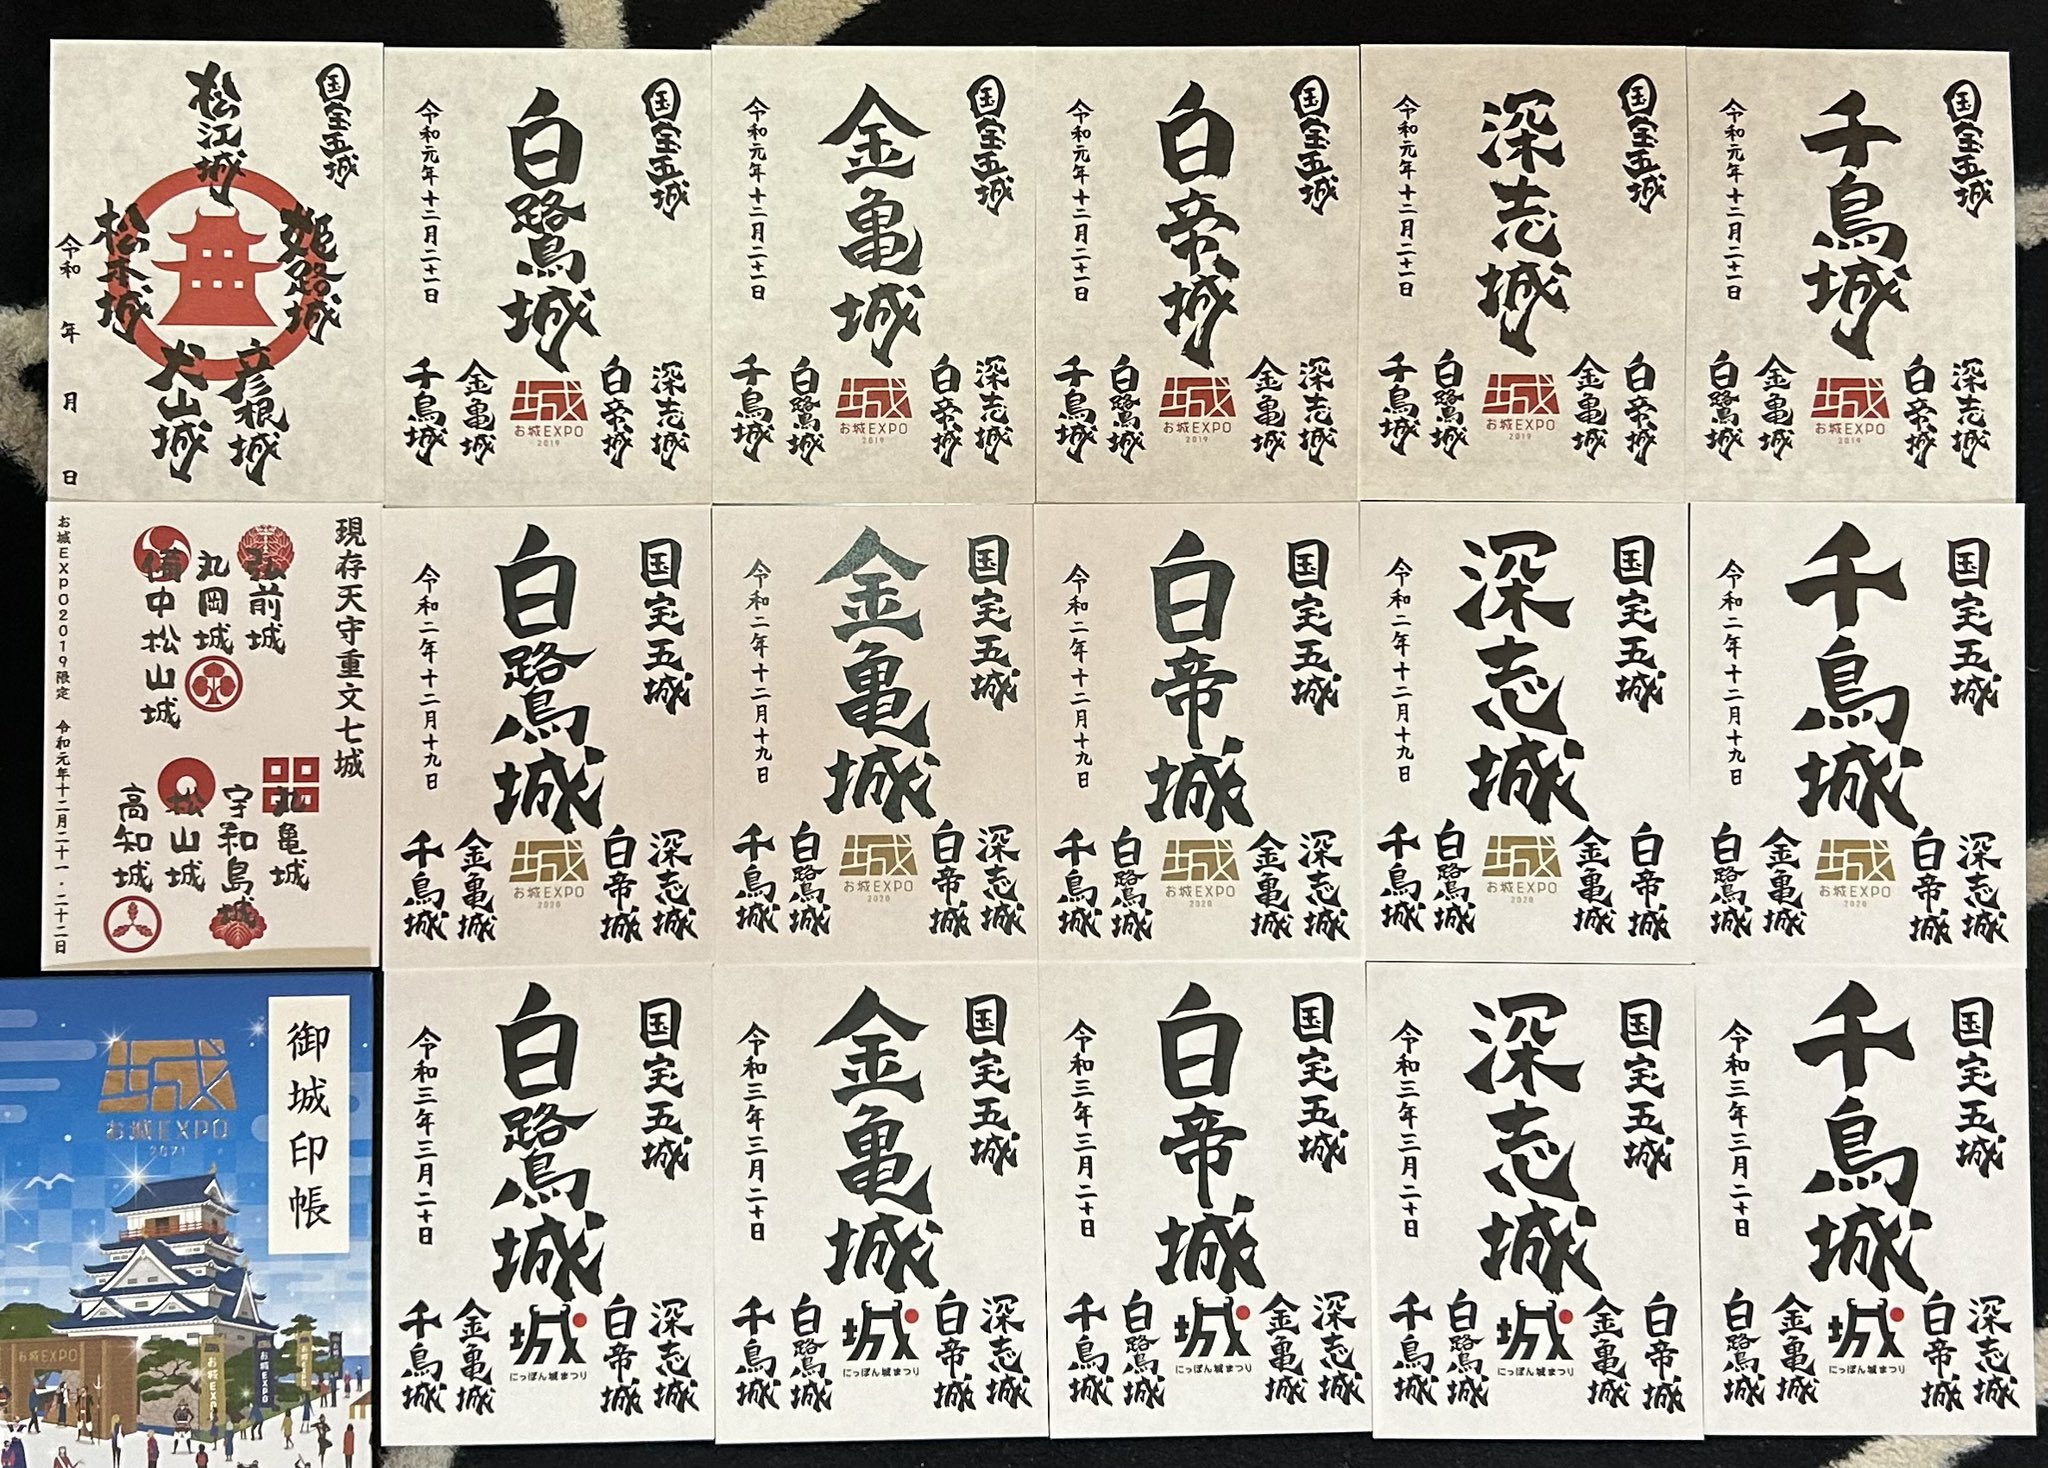 国宝五城
松江城
姫路城
松本城
彦根城
犬山城
令和 年 月 日
国宝五城
白鷺城
令和元年十二月二十一日
深志城
白帝城
金亀城
千鳥城
城
お城EXPO
2019
国宝五城
金亀城
令和元年十二月二十一日
深志城
白帝城
白鷺城
千鳥城
城
お城EXPO
2019
国宝五城
白帝城
令和元年十二月二十一日
深志城
金亀城
白鷺城
千鳥城
城
お城EXPO
2019
国宝五城
深志城
令和元年十二月二十一日
白帝城
金亀城
白鷺城
千鳥城
城
お城EXPO
2019
国宝五城
千鳥城
令和元年十二月二十一日
深志城
白帝城
金亀城
白鷺城
城
お城EXPO
2019
現存天守重文七城
弘前城
丸岡城
備中松山城
丸亀城
宇和島城
松山城
高知城
お城EXPO2019限定 令和元年十二月二十一・二十二日
国宝五城
白鷺城
令和二年十二月十九日
深志城
白帝城
金亀城
千鳥城
城
お城EXPO
2020
国宝五城
金亀城
令和二年十二月十九日
深志城
白帝城
白鷺城
千鳥城
城
お城EXPO
2020
国宝五城
白帝城
令和二年十二月十九日
深志城
金亀城
白鷺城
千鳥城
城
お城EXPO
2020
国宝五城
深志城
令和二年十二月十九日
白帝城
金亀城
白鷺城
千鳥城
城
お城EXPO
2020
国宝五城
千鳥城
令和二年十二月十九日
深志城
白帝城
金亀城
白鷺城
城
お城EXPO
2020
御城印帳
城
お城EXPO
2021
お城EXPO
お城EXPO
お城EXPO
お城EXPO
国宝五城
白鷺城
令和三年三月二十日
深志城
白帝城
金亀城
千鳥城
城
にっぽん城まつり
国宝五城
金亀城
令和三年三月二十日
深志城
白帝城
白鷺城
千鳥城
城
にっぽん城まつり
国宝五城
白帝城
令和三年三月二十日
深志城
金亀城
白鷺城
千鳥城
城
にっぽん城まつり
国宝五城
深志城
令和三年三月二十日
白帝城
金亀城
白鷺城
千鳥城
城
にっぽん城まつり
国宝五城
千鳥城
令和三年三月二十日
深志城
白帝城
金亀城
白鷺城
城
にっぽん城まつり